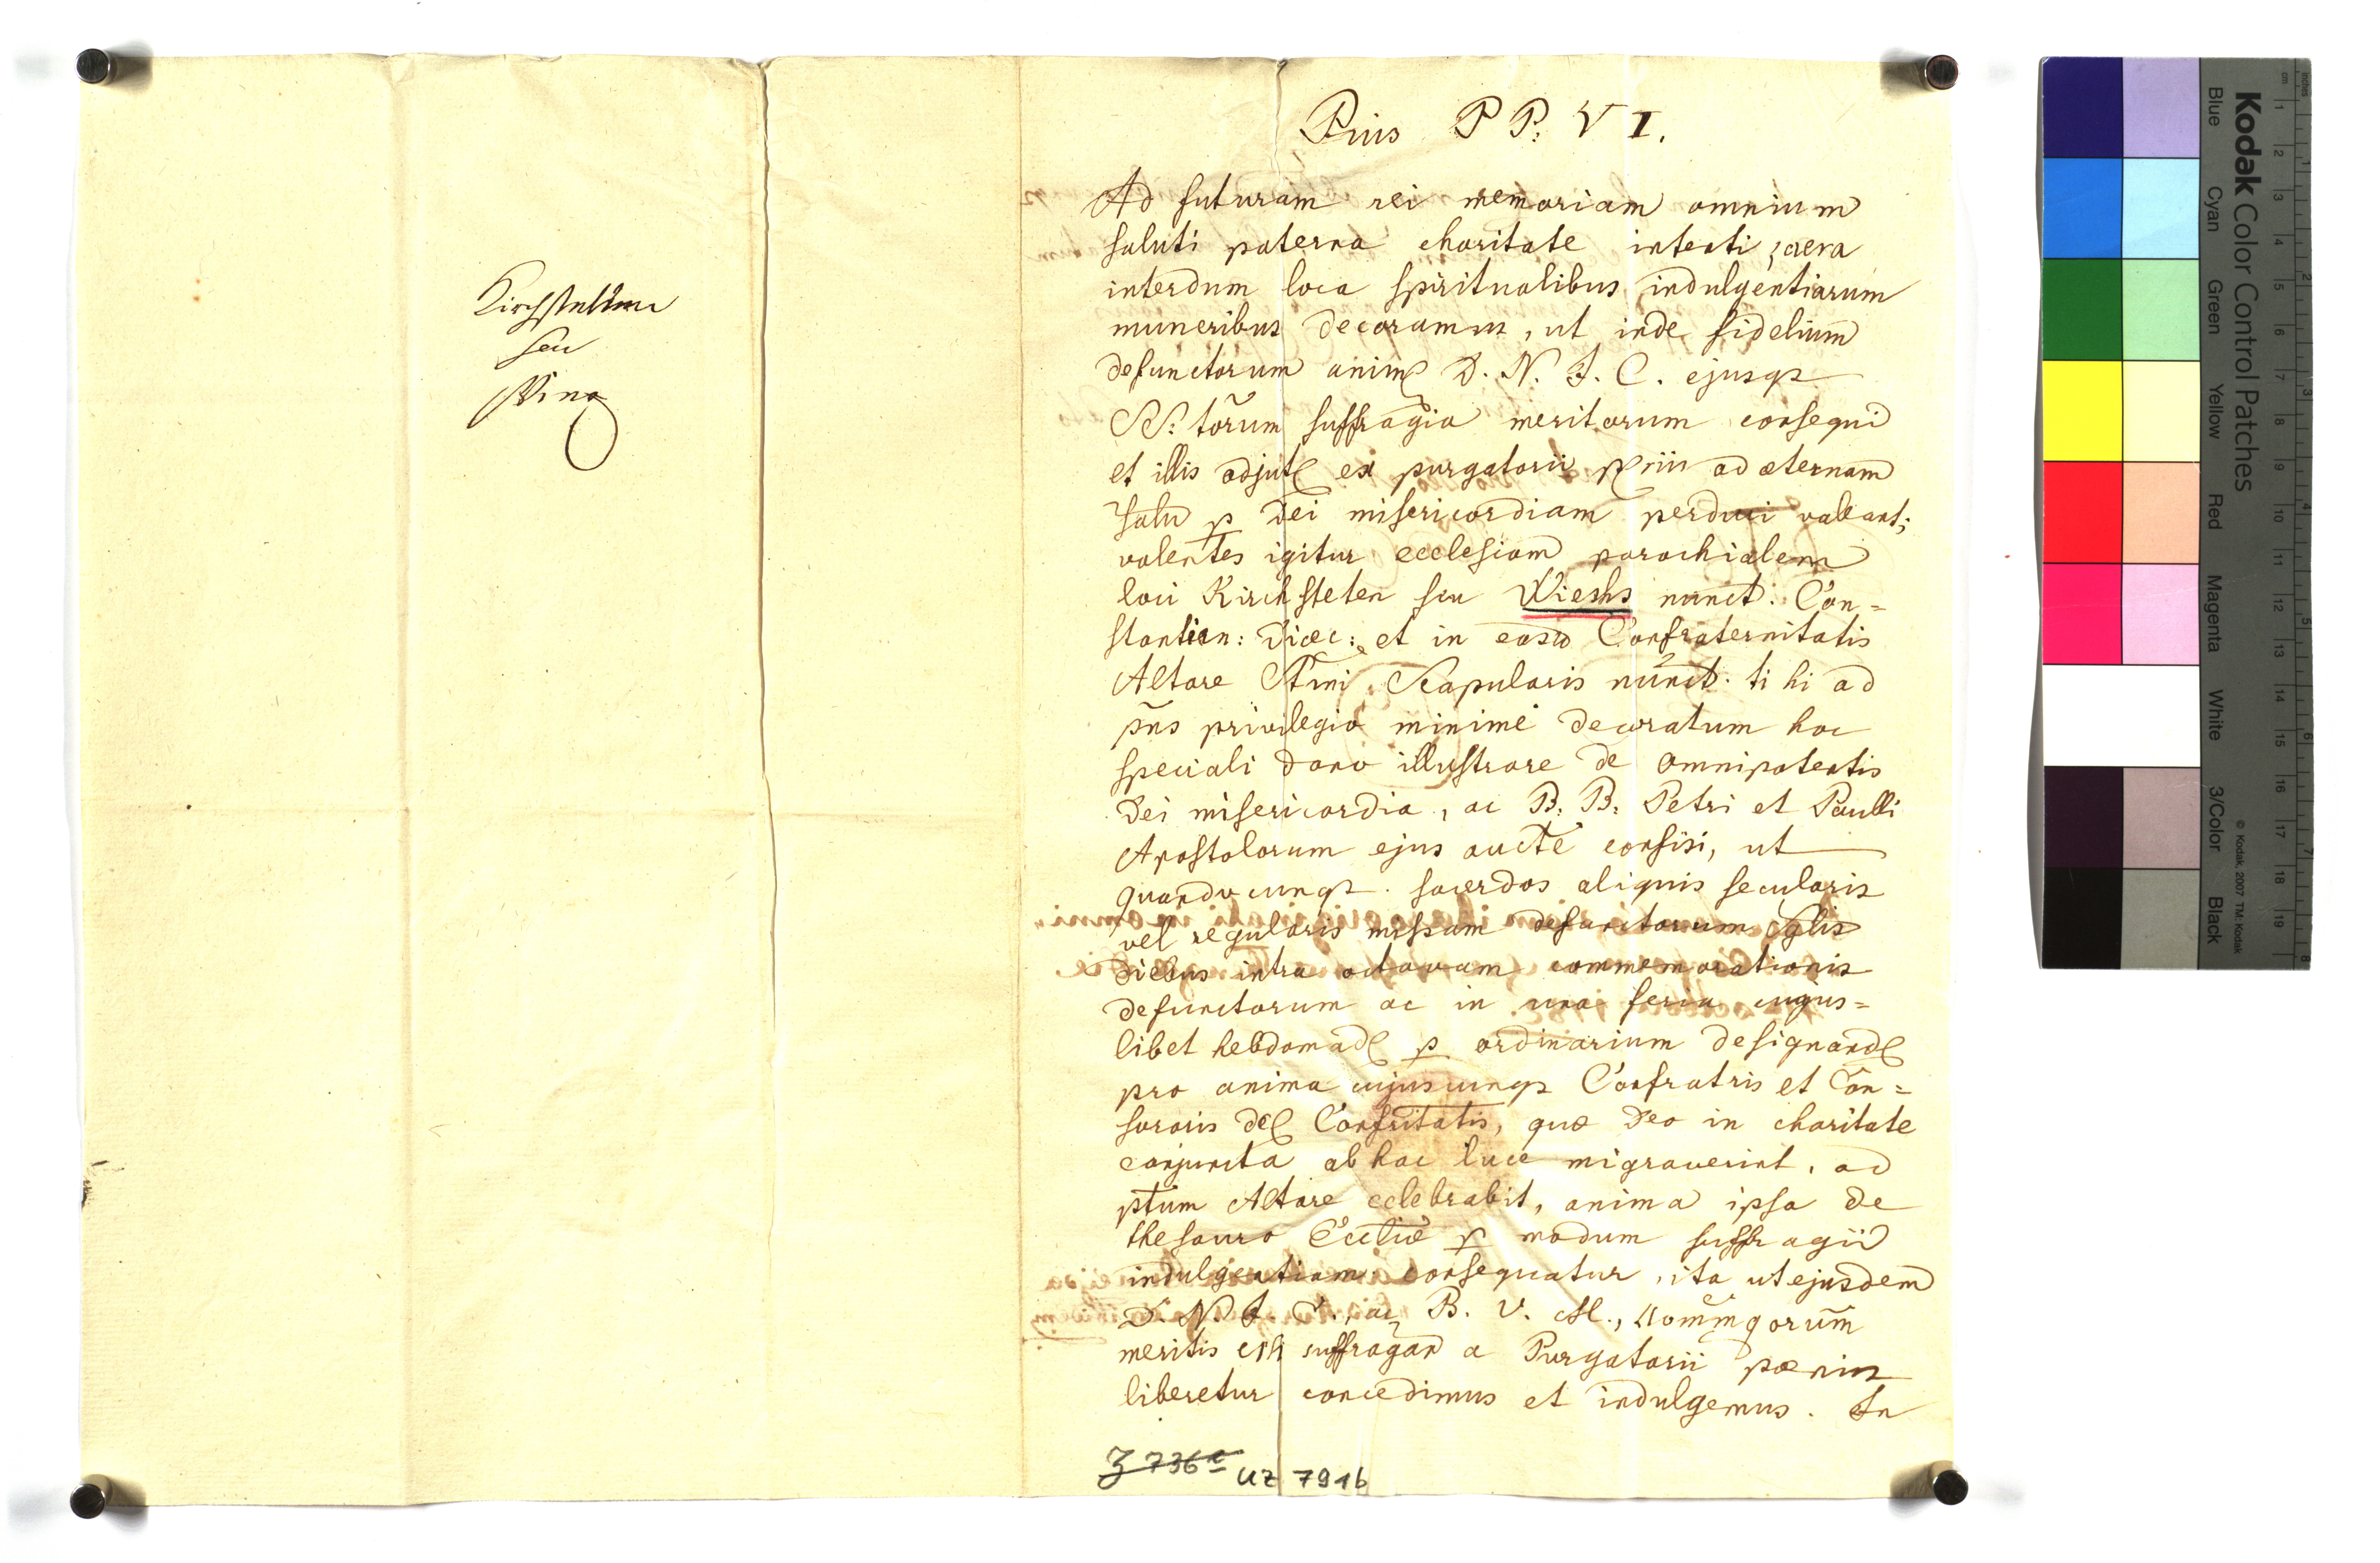 Kirchstetten
seu
Pius PP. VI.
Ad futuram rei memoriam omnium
saluti paterna charitate intenti, sacra
interdum loca spiritualibus indulgentiarum
muneribus decoramus, ut inde fidelium
defunctorum animę D. N. J. C. ejusqz
SS: torum suffragia meritorum consequi
et illis adjutę ex purgatorii pęniis ad æternam
salu p Dei misericordiam perduci valeant;
volentes igitur ecclesiam parochialem
loci Kirchsteten seu Wiechs nunct. Con=
stantien: Diœc: et in easd Confraternitatis
Altare Ssmi Scapularis nunct. ti hi ad
pñs privilegio minime decoratum hoc
speciali dono illustrare de omnipotentis
Dei misericordia, ac B. B. Petri et Paulli
Apostolorum ejus aucte confisi, ut
quandocunqz. sacerdos aliquis secularis
vel regularis missam defunctorum sglis
diebus intra octavam commemorationis
defunctorum ac in una feria cujus=
libet hebdomadę p ordinarium designandę
pro anima cujuscunqz Confratris et Con=
sororis dcę Confritatis, quæ Deo in charitate
conjuncta ab hac luce migraverint, ad
ptum Altare celebrabit, anima ipsa de
thesauro Ecclie p modum suffragii
indulgentiam consequatur, ita ut ejusdem
D. N. J. C. ac B. V. M.,
meritis suffragan a Purgatorii pœnis
liberetur concedimus et indulgemus. In
Z 736a UZ 791b
Kodak Color Control Patches
© Kodak, 2007 TM: Kodak
Blue Cyan Green Yellow Red Magenta White 3/Color Black
cm 1 2 3 4 5 6 7 8 9 10 11 12 13 14 15 16 17 18 19
inches 1 2 3 4 5 6 7 8